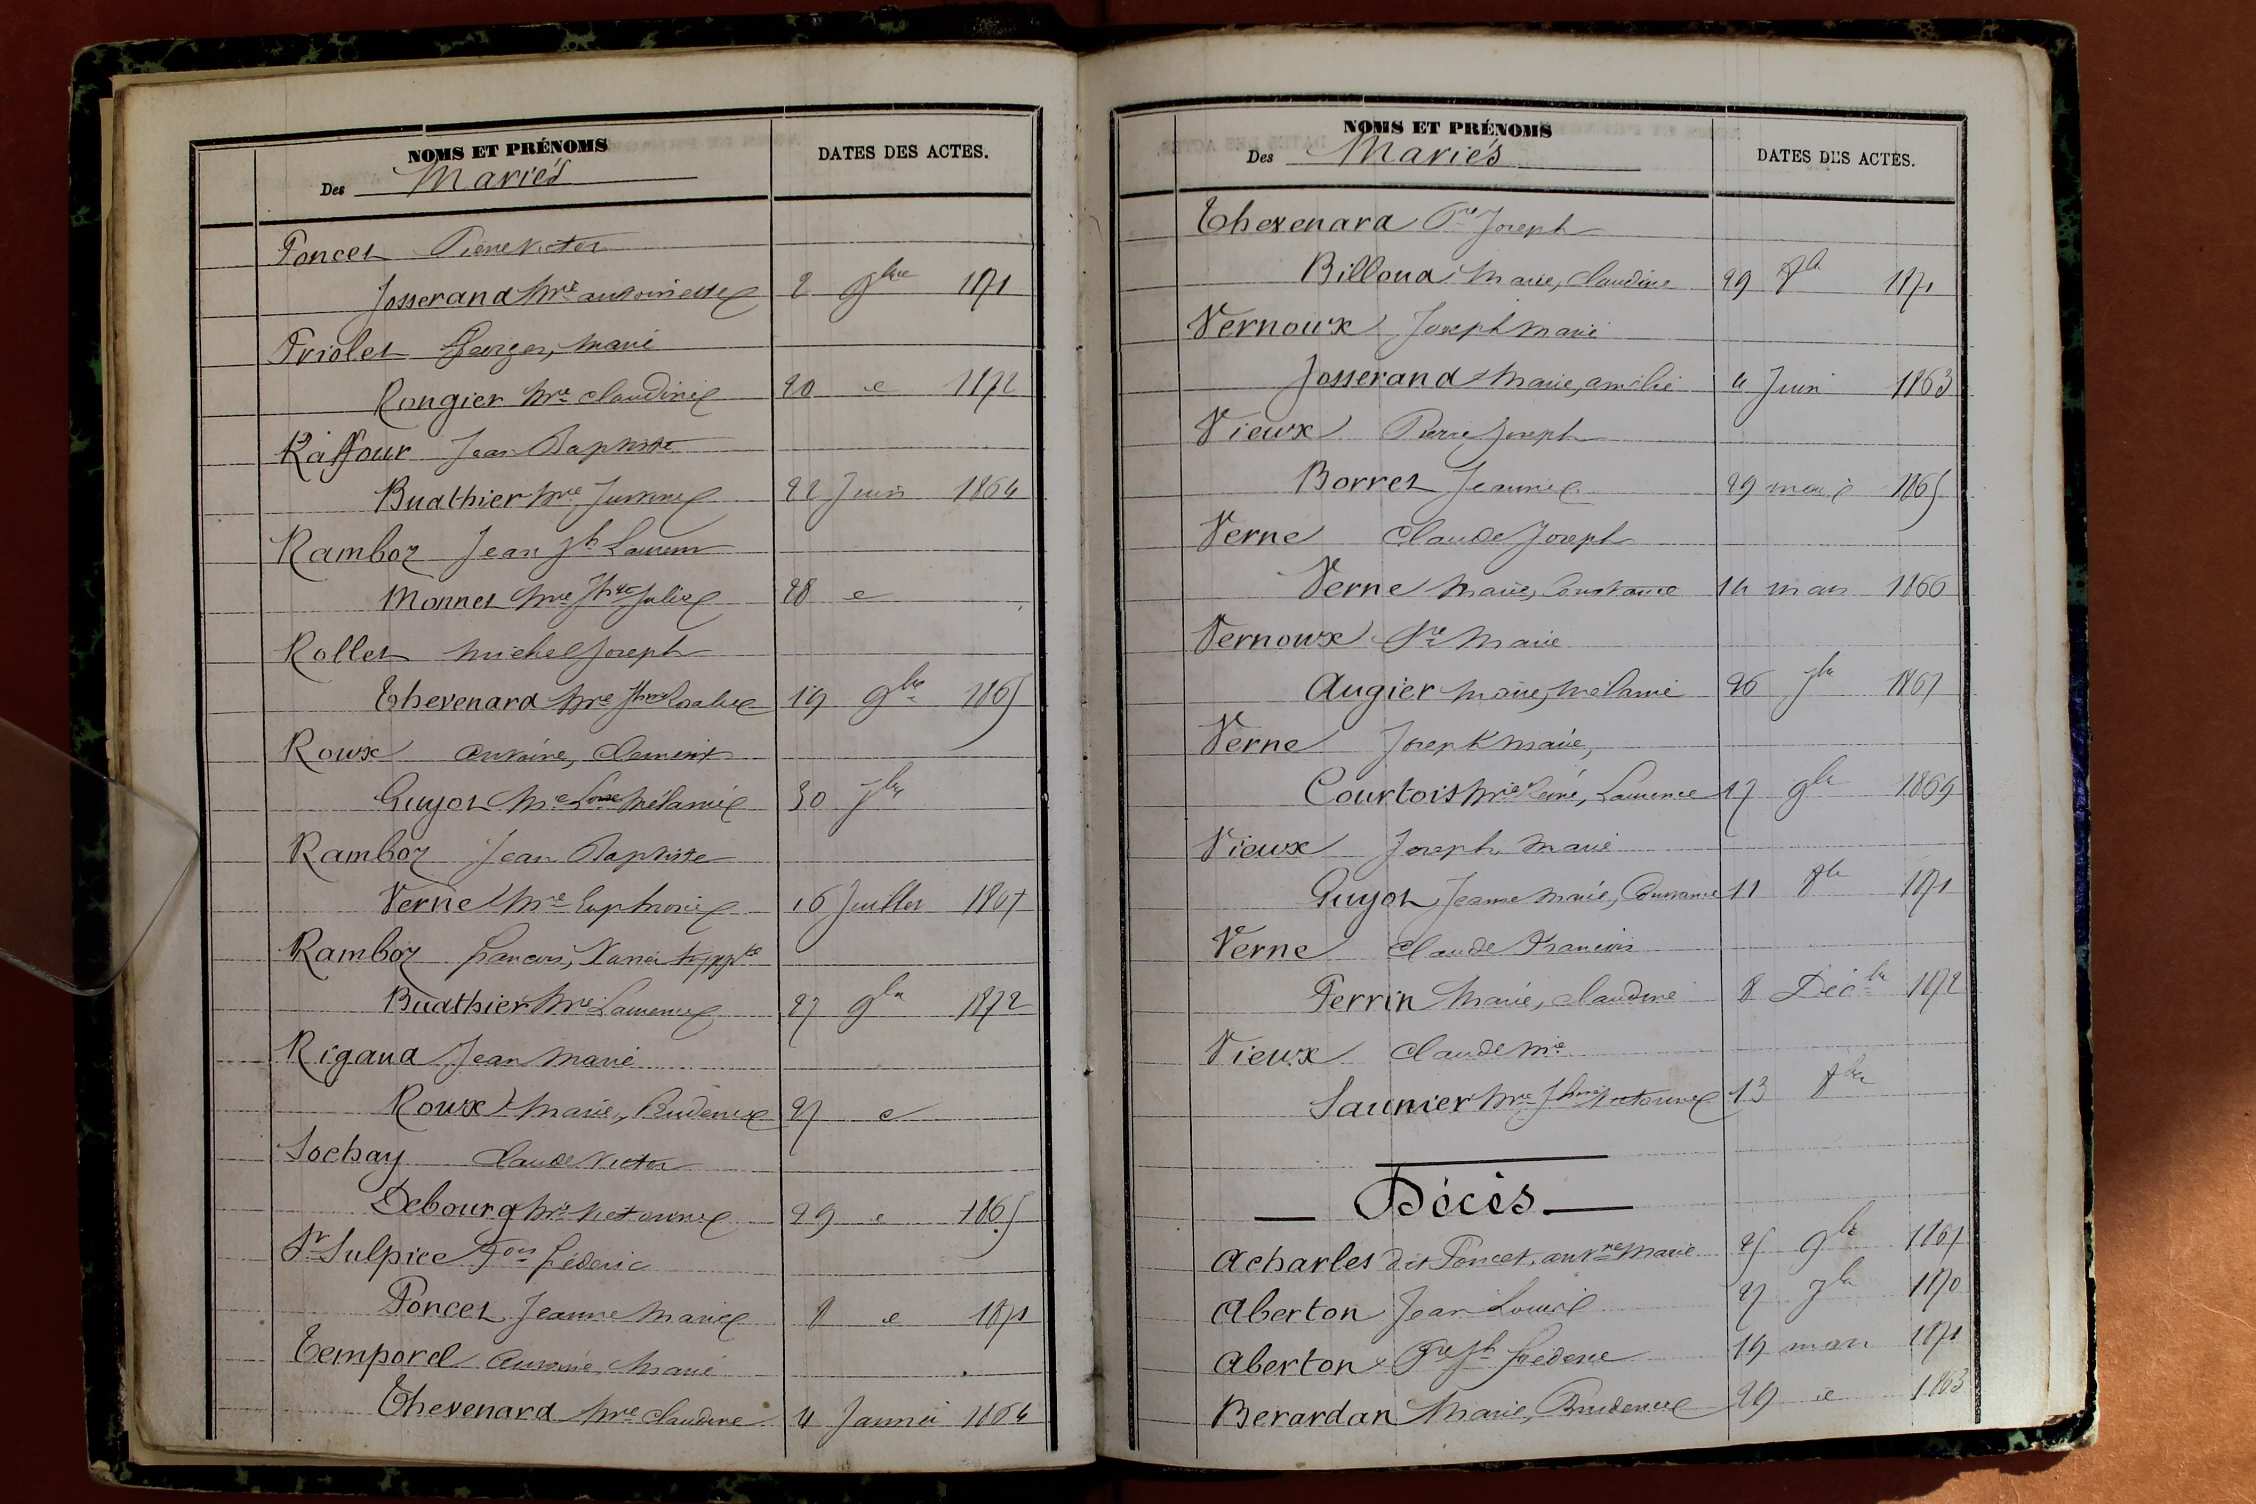 NOMS ET PRÉNOMS
DATES DES ACTES.
Des Mariés
Poncet Pierre Victor
Josserand Mie antoinette 2 9bre 1871
Priolet Georges, Marie
Rongier Mie Claudine 20 e 1872
Raffour Jean Baptiste
Buathier Mie 22 Juin 1864
Ramboz Jean Jh Laurent
Monnet Mie Jhte Julie 28 e
Rollet Michel Joseph
Thevenard Mie Jhine Rosalie 19 9bre 1865
Roux antoine, Clement
Guyot Mie Loise Mélanie 30 7bre
Ramboz Jean Baptiste
Verne Mie Euphrosie 16 Juillet 1867
Ramboz francois, Xavier hyppte
Buathier Mie Laurence 27 9bre 1872
Rigaud Jean Marie
Roux Marie, Prudence 27 e
Sochay Claude Victor
Debourg Mie Victorine 29 e 1865
St Sulpice fois fréderic
Poncet Jeanne Marie 8 e 1871
Temporel Antoine Marie
Thevenard Mie Claudine 4 Janvier 1864
NOMS ET PRÉNOMS
Des Mariés
DATES DES ACTES.
Thevenard Pre Joseph
Billoud Marie, Claudine 29 8bre 1871
Vernoux Joseph Marie
Josserand Marie, amélie 4 Juin 1863
Vieux Pierre Joseph
Borret Jeannie 29 mai 1865
Verne Claude Joseph
Verne Marie, Constance 14 mars 1866
Vernoux Pre Marie
Augier Marie, Mélanie 26 7bre 1867
Verne Joseph Marie,
Courtois Mie Reiné, Laurence 17 9bre 1869
Vieux Joseph Marie
Guyot Jeanne Marie, Constance 11 8bre 1871
Verne Claude Francois
Perrin Marie, Claudine 8 Décbre 1872
Vieux Claude Mie
Saunier Mie Jhine Victorine 13 8bre
Décès
Acharles dit Poncet, antne Marie 25 9bre 1867
Aberton Jean Louis 27 7bre 1870
Aberton Pre Jh fréderic 19 mars 1871
Berardan Marie, Prudence 29 e 1863